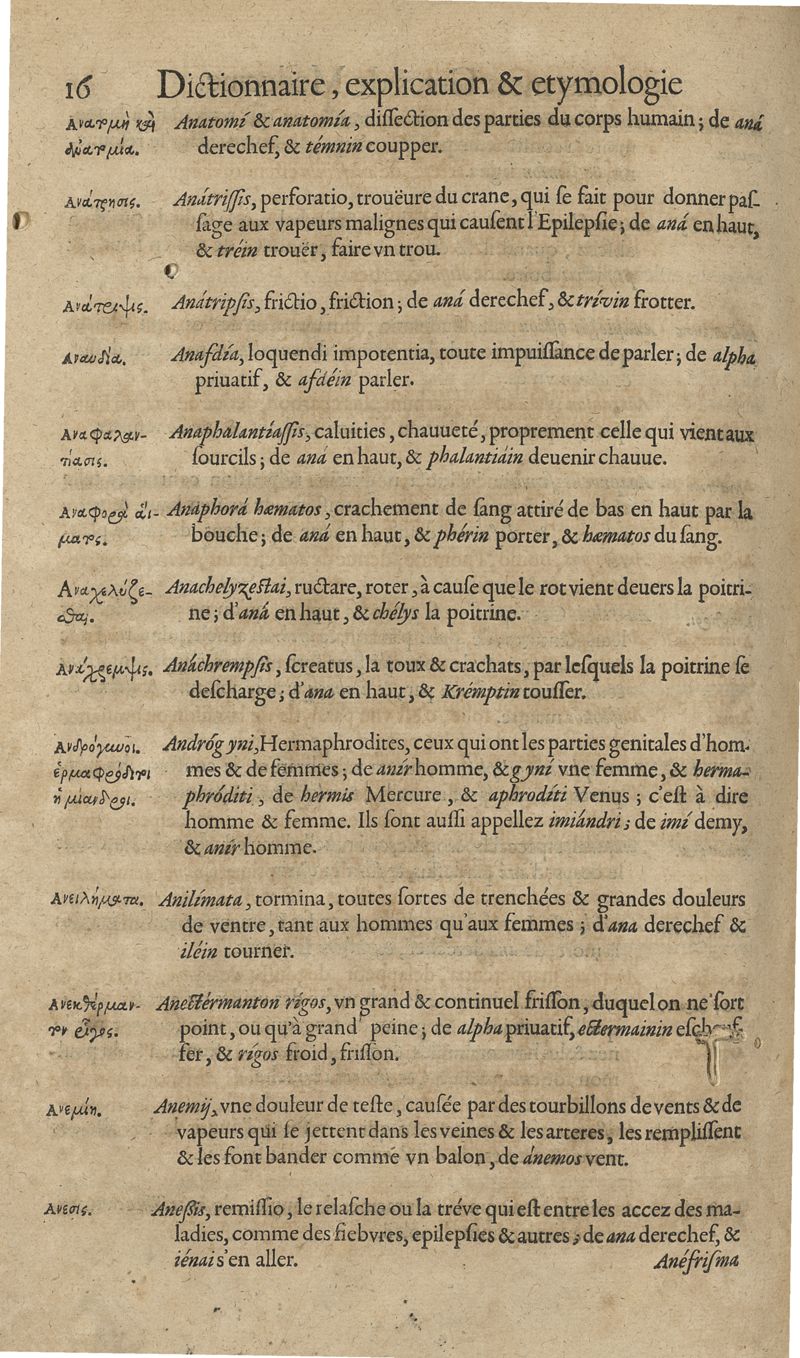 16 Dictionnaire, explication & etymologie
Ανατομὴ καὶ Anatomí & anatomía, diſſection des parties du corps humain; de aná
ἀνατομία. derechef, & témnin coupper.
Ανάτρησις. Anátriſsis, perforatio, trouëure du crane, qui ſe fait pour donner paſ-
ſage aux vapeurs malignes qui cauſent l'Epilepſie; de aná en haut,
& tréin trouër, faire vn trou.
Ανάτριψις. Anátripſis, frictio, friction; de aná derechef, & trívin frotter.
Αναυδία. Anafdía, loquendi impotentia, toute impuiſſance de parler; de alpha
priuatif, & afdéin parler.
Αναφαλαν- Anaphalantíaſſis, caluities, chauueté, proprement celle qui vient aux
τίασις. ſourcils; de aná en haut, & phalantiáin deuenir chauue.
Αναφορὰ αἵ- Anaphorá hæmatos, crachement de ſang attiré de bas en haut par la
ματος. bouche; de aná en haut, & phérin porter, & hæmatos du ſang.
Αναχελύζε- Anachelyzeſtai, ructare, roter, à cauſe que le rot vient deuers la poitri-
σθαι. ne; d'aná en haut, & chélys la poitrine.
Ανάχρεμψις. Anáchrempſis, ſcreatus, la toux & crachats, par leſquels la poitrine ſe
deſcharge; d'ana en haut, & Krémptin touſſer.
Ανδρόγυνοι. Andrógyni, Hermaphrodites, ceux qui ont les parties genitales d'hom-
ἑρμαφρόδιτοι mes & de femmes; de anír homme, & gyní vne femme, & herma-
ἡμίανδροι. phróditi, de hermis Mercure, & aphrodíti Venus; c'eſt à dire
homme & femme. Ils ſont auſſi appellez imiándri; de imí demy,
& anír homme.
Ανειλήματα. Anilímata, tormina, toutes ſortes de trenchées & grandes douleurs
de ventre, tant aux hommes qu'aux femmes; d'ana derechef &
iléin tourner.
Ανεκθέρμαν- Anectérmanton rígos, vn grand & continuel friſſon, duquel on ne ſort
τον ῥῖγος. point, ou qu'à grand' peine; de alpha priuatif, ectermainin eſchauf-
fer, & rígos froid, friſſon.
Ανεμίη. Anemij, vne douleur de teſte, cauſée par des tourbillons de vents & de
vapeurs qui ſe jettent dans les veines & les arteres, les rempliſſent
& les font bander comme vn balon, de ánemos vent.
Ανεσις. Aneſsis, remiſſio, le relaſche ou la tréve qui eſt entre les accez des ma-
ladies, comme des fiebvres, epilepſies & autres; de ana derechef, &
iénai s'en aller. Anéfriſma